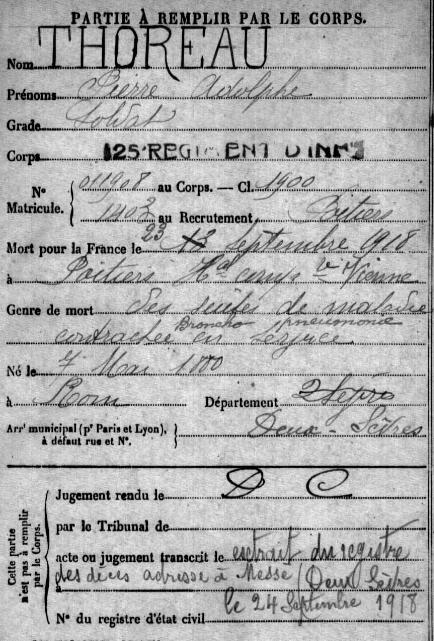 PARTIE À REMPLIR PAR LE CORPS.
Nom THOREAU
Prénoms Pierre Adolphe
Grade Soldat
Corps 125 REGIMENT D'INF
N° Matricule. 011908 au Corps. — Cl. 1900
au Recrutement, Poitiers
Mort pour la France le 23 septembre 1918
à Poitiers Vienne
Genre de mort des suites de maladie
Broncho pneumonie
contractée en service
Né le 7 Mai 1880
à Rom Département 2 Sèvres
Arrt municipal (pr Paris et Lyon), à défaut rue et N°. Deux-Sèvres
Cette partie n'est pas à remplir par le Corps.
Jugement rendu le D C
par le Tribunal de
acte ou jugement transcrit le extrait du registre
des décès adressé à Messé (Deux Sèvres
le 24 Septembre 1918
N° du registre d'état civil